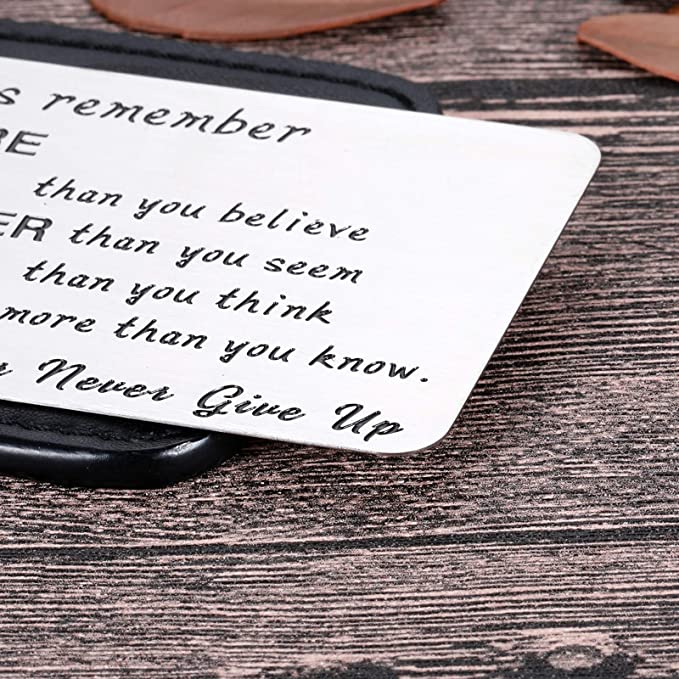 s remember
RE
than you believe
ER than you seem
than you think
more than you know.
r Never Give Up